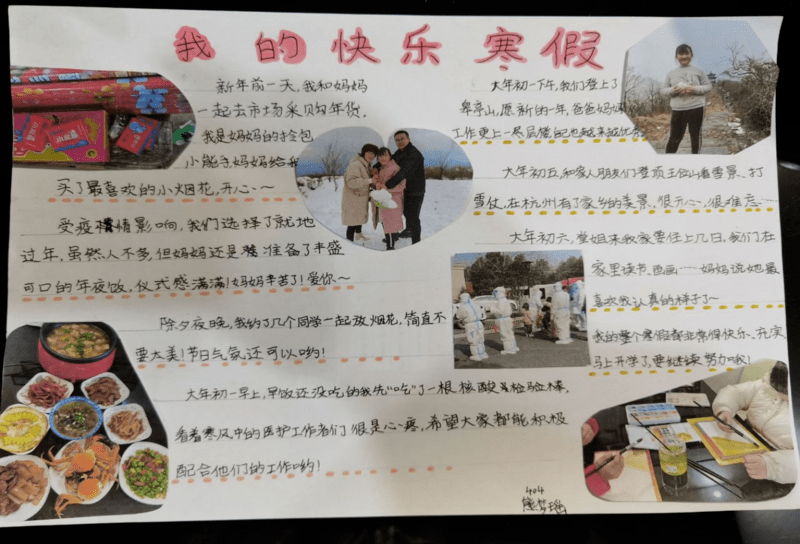 我的快乐寒假
新年前一天,我和妈妈
一起去市场采购年货,
我是妈妈的拎包
小能手,妈妈给我
买了最喜欢的小烟花,开心~
受疫情影响,我们选择了就地
过年,虽然人不多,但妈妈还是准备了丰盛
可口的年夜饭,仪式感满满!妈妈辛苦了!爱你~
除夕夜晚,我约了几个同学一起放烟花,简直不
要太美!节日气氛还可以哟!
大年初一早上,早饭还没吃的我先“吃”了一根核酸检验棒,
看着寒风中的医护工作者们很是心疼,希望大家都能积极
配合他们的工作哟!
大年初一下午,我们登上了
皋亭山,愿新的一年,爸爸妈妈
工作更上一层层楼自己也越来越优秀
大年初五和家人朋友们登顶王位山看雪景、打
雪仗,在杭州有了家乡的美景,很开心,很难忘……
大年初六,堂姐来我家要住上几日,我们在
家里读书、画画……妈妈说她最
喜欢我认真的样子了~
我的整个寒假都非常得快乐、充实,
马上开学了,要继续努力哦!
404